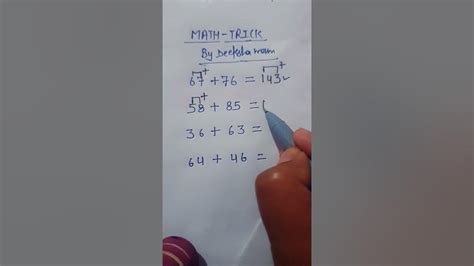 MATH-TRICK
By Deeksha mam
67 + 76 = 143
58 + 85 = 1
36 + 63 =
64 + 46 =